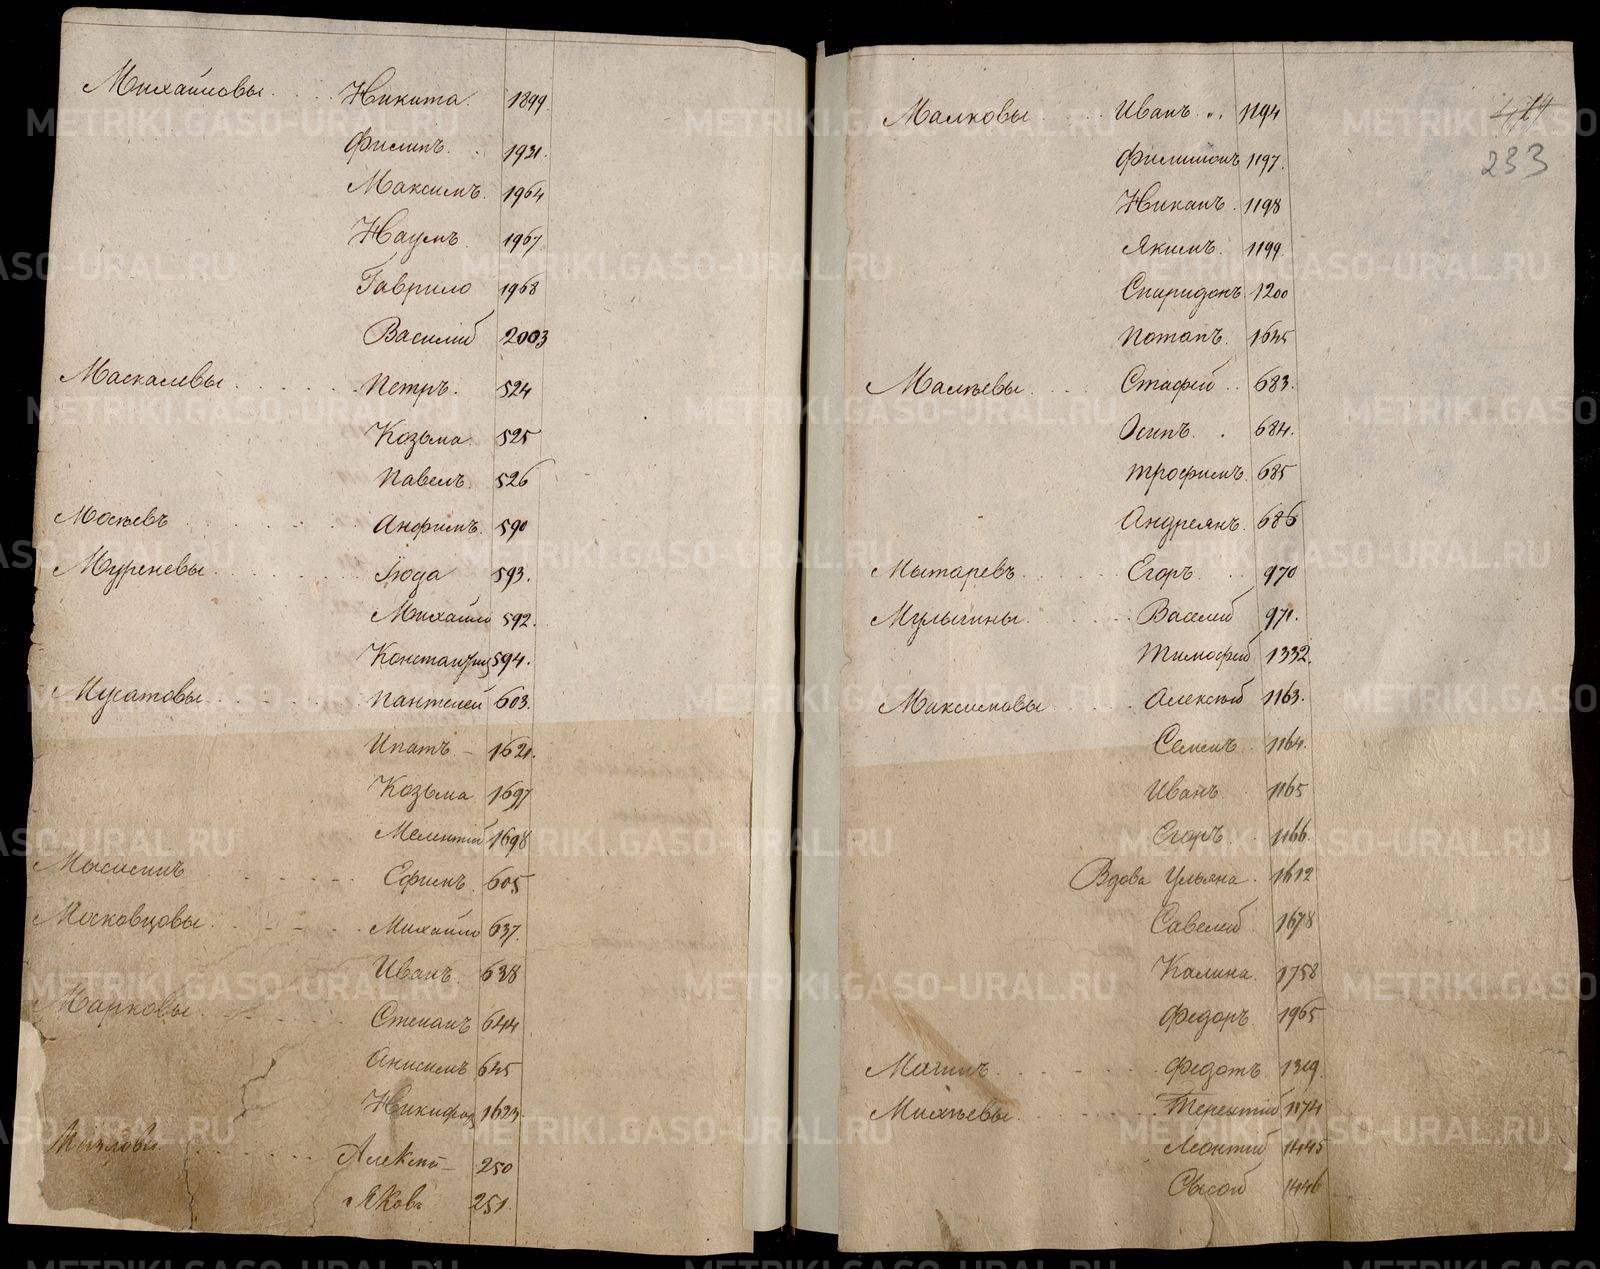 Михайловы . . . . Никита. 1899.
Филипъ. . 1921.
Максимъ. 1964
Наумъ. 1967
Гаврило 1968
Василий 2003
Маскалевы . . . . . . Петръ. 524
Козьма 525
Павелъ. 526
Мосѣевъ . . . . . Анфимъ. 590
Муреневы . . . . . Іюда 593.
Михайло 592.
Константинъ 594.
Мусатовы . . . . . Пантелей 603.
Ипатъ - 1621.
Козьма 1697
Мелентій 1698
Ефимъ. 605
Московцовы . . . . . Михайло 637.
Иванъ. 638
Марковы . . . . . Степанъ 644
Анисимъ 645
Никифор 1623.
Алексѣй - 250
Яковъ 251
424
233
Малковы . . . . Иванъ . . . 1194
Филимонъ 1197.
Никанъ. 1198
Якимъ. 1199.
Спиридонъ 1200
Потапъ. 1645
Малѣевы . . . . Стафей . . 683.
Осипъ. . 684.
Трофимъ. 685
Андреянъ. 686
Мытаревъ . . . . . Егоръ. . . 970
Мулыгины . . . . . Василий 971.
Тимофей 1332.
Максимовы . . . . . Алексѣй 1163.
Семенъ. 1164.
Иванъ 1165
Егоръ. . 1166.
Вдова Ульяна. 1612
Савелий 1678
Калина. 1758
Федоръ. 1965
Магинъ . . . . . . Федотъ 1319.
Михѣевы . . . . . Терентий 1174
Леонтий 1445
Сысой 1446
METRIKI.GASO-URAL.RU